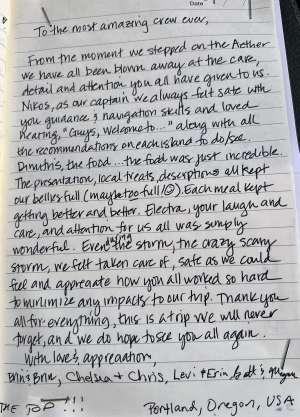 Date
To the most amazing crew ever,
From the moment we stepped on the Aether
we have all been blown away at the care,
detail and attention you all have given to us.
Nikos, as our captain we always felt safe with
you guidance & navigation skills and loved
hearing, "Guys, Welcome to..." along with all
the recommendations on each island to do/see.
Dimitris, the food... the food was just incredible.
The presentation, local treats, descriptions all kept
our bellies full (maybe too full!☺). Each meal kept
getting better and better. Electra, your laugh and
care, and attention for us all was simply
wonderful. Even during the storm, the crazy scary
storm, we felt taken care of, safe as we could
feel and appreciate how you all worked so hard
to minimize any impacts to our trip. Thank you
all for everything, this is a trip we will never
forget, and we do hope to see you all again.
With love & appreciation,
Brin & Brian, Chelsea + Chris, Levi + Erin
THE TOD !!!
Portland, Oregon, USA